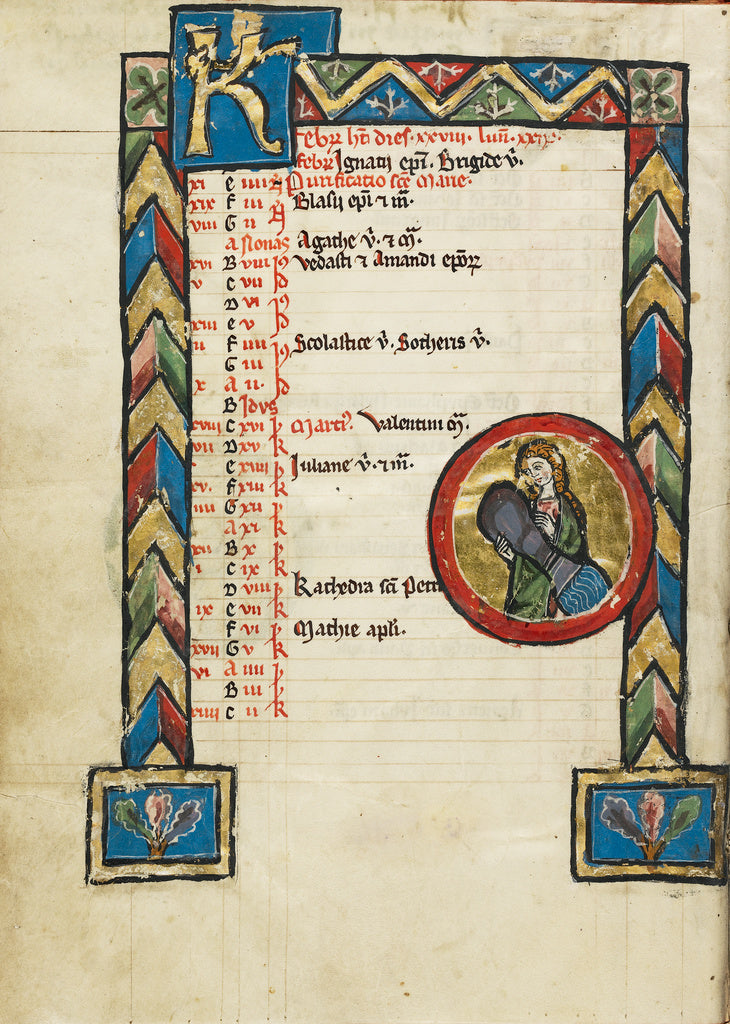 K
Febr̃ hт dies xxviii. luñ. xxix.
febr̃ Ignatij ep̃i. Brigide v̄.
xi e iiii N̄ Purificatio sc̃e Marie.
xix F iii N̄ Blasij ep̃i ⁊ m̃.
viii G ii N̄
A Nonas Agathe v̄. ⁊ m̃.
xvi B viii Id Vedasti ⁊ Amandi ep̃orꝝ
v c vii Id
D vi Id
xiii e v Id
ii F iiii Id Scolastice v̄. Sotheris v̄.
G iii Id
x A ii. Id
B Idvs
xviii C xvi k Martiꝰ. Valentini m̃.
vii D xv k
e xiiii k Iuliane v̄. ⁊ m̃.
xv. F xiii k
iiii G xii k
A xi k
xii B x k
i C ix k
D viii k Kathedra sc̃i Petri
ix e vii k
F vi k Mathie apl̃i.
xvii G v k
vi A iiii k
B iii k
xiiii C ii k